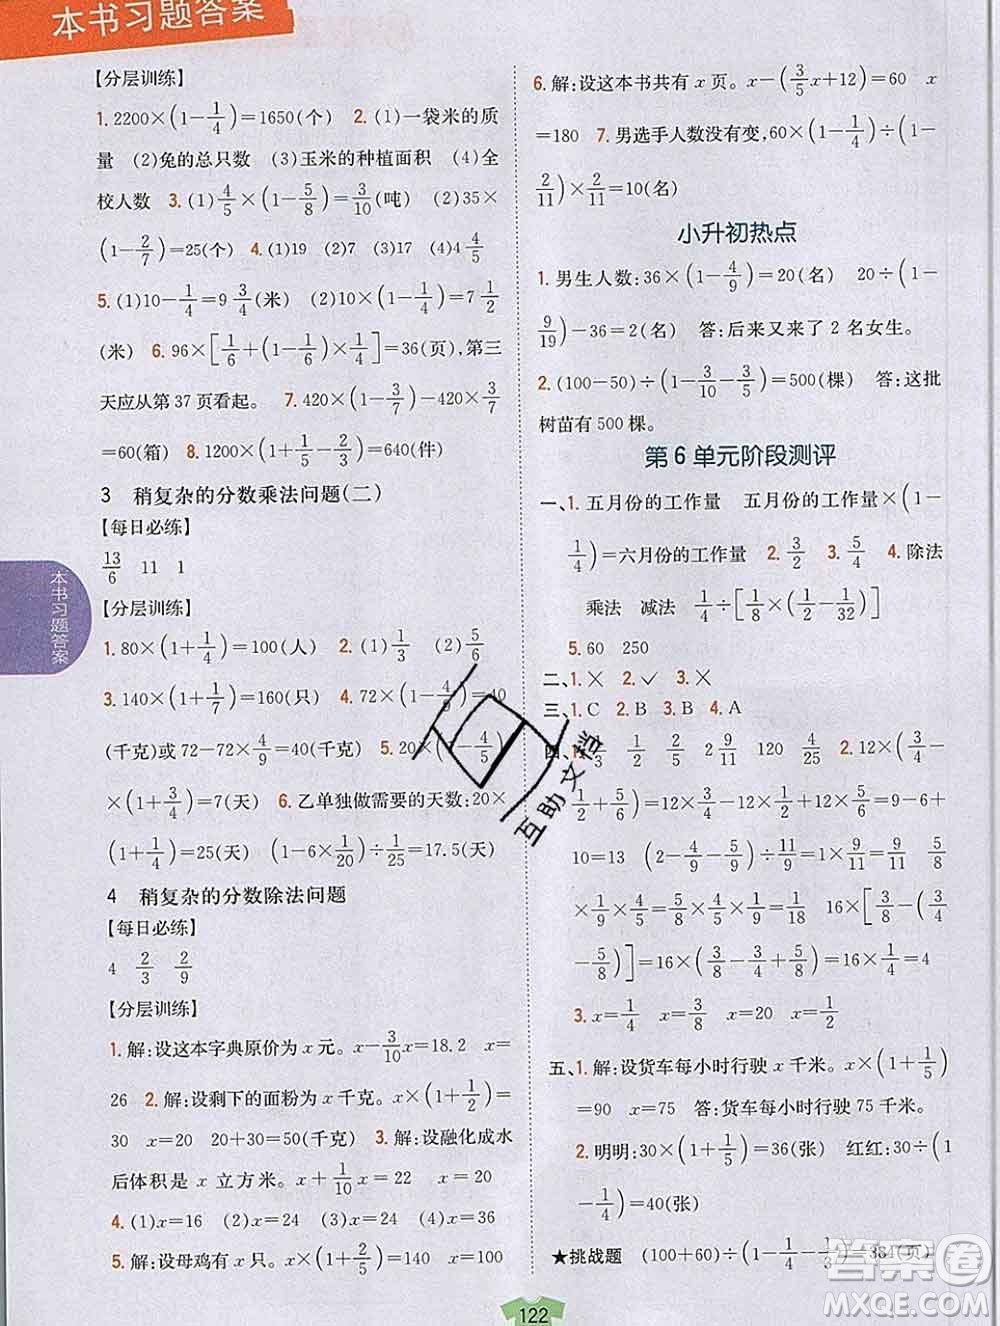 本书习题答案
【分层训练】
1. 2200×(1-1/4)=1650(个) 2. (1)一袋米的质
量 (2)兔的总只数 (3)玉米的种植面积 (4)全
校人数 3. (1)4/5×(1-5/8)=3/10(吨) (2)35×
(1-2/7)=25(个) 4. (1)19 (2)7 (3)17 (4)4/5
5. (1)10-1/4=9 3/4(米) (2)10×(1-1/4)=7 1/2
(米) 6. 96×[1/6+(1-1/6)×1/4]=36(页),第三
天应从第 37 页看起。 7. 420×(1-3/7)-420×3/7
=60(箱) 8. 1200×(1+1/5-2/3)=640(件)
3 稍复杂的分数乘法问题(二)
【每日必练】
13/6 11 1
【分层训练】
1. 80×(1+1/4)=100(人) 2. (1)1/3 (2)5/6
3. 140×(1+1/7)=160(只) 4. 72×(1-4/9)=40
(千克)或 72-72×4/9=40(千克) 5. 20×(1-4/5)
×(1+3/4)=7(天) 6. 乙单独做需要的天数:20×
(1+1/4)=25(天) (1-6×1/20)÷1/25=17.5(天)
4 稍复杂的分数除法问题
【每日必练】
4 2/3 2/9
【分层训练】
1. 解:设这本字典原价为 x 元。x-3/10x=18.2 x=
26 2. 解:设剩下的面粉为 x 千克。x×(1+1/2)=
30 x=20 20+30=50(千克) 3. 解:设融化成水
后体积是 x 立方米。x+1/10x=22 x=20
4. (1)x=16 (2)x=24 (3)x=24 (4)x=36
5. 解:设母鸡有 x 只。x×(1+1/5)=120 x=100
6. 解:设这本书共有 x 页。x-(3/5x+12)=60 x
=180 7. 男选手人数没有变,60×(1-1/4)÷(1-
2/11)×2/11=10(名)
小升初热点
1. 男生人数:36×(1-4/9)=20(名) 20÷(1-
9/19)-36=2(名) 答:后来又来了 2 名女生。
2. (100-50)÷(1-3/10-3/5)=500(棵) 答:这批
树苗有 500 棵。
第 6 单元阶段测评
一、1. 五月份的工作量 五月份的工作量×(1-
1/4)=六月份的工作量 2. 3/2 3. 5/4 4. 除法
乘法 减法 1/4÷[1/8×(1/2-1/32)]
5. 60 250
二、1. × 2. ✓ 3. ×
三、1. C 2. B 3. B 4. A
四、1/3 2/5 2 9/11 120 4/25 2. 12×(3/4-
1/2+5/6)=12×3/4-12×1/2+12×5/6=9-6+
10=13 (2/9-4/9-5/9)÷9/11=1×9/11=9/11 5/8
×1/9×4/5=5/8×4/5×1/9=1/18 16×[3/8-(3/4
-5/8)]=16×[3/8-1/8]=16×1/4=4
3. x=1/4 x=3/8 x=20 x=4/5
五、1. 解:设货车每小时行驶 x 千米。x×(1+1/5)
=90 x=75 答:货车每小时行驶 75 千米。
2. 明明:30×(1+1/5)=36(张) 红红:30÷(1
-1/4)=40(张)
★挑战题 (100+60)÷(1-1/4-1/3)=384(页)
本书习题答案
122
互助文档
答案圈
MXQE.COM